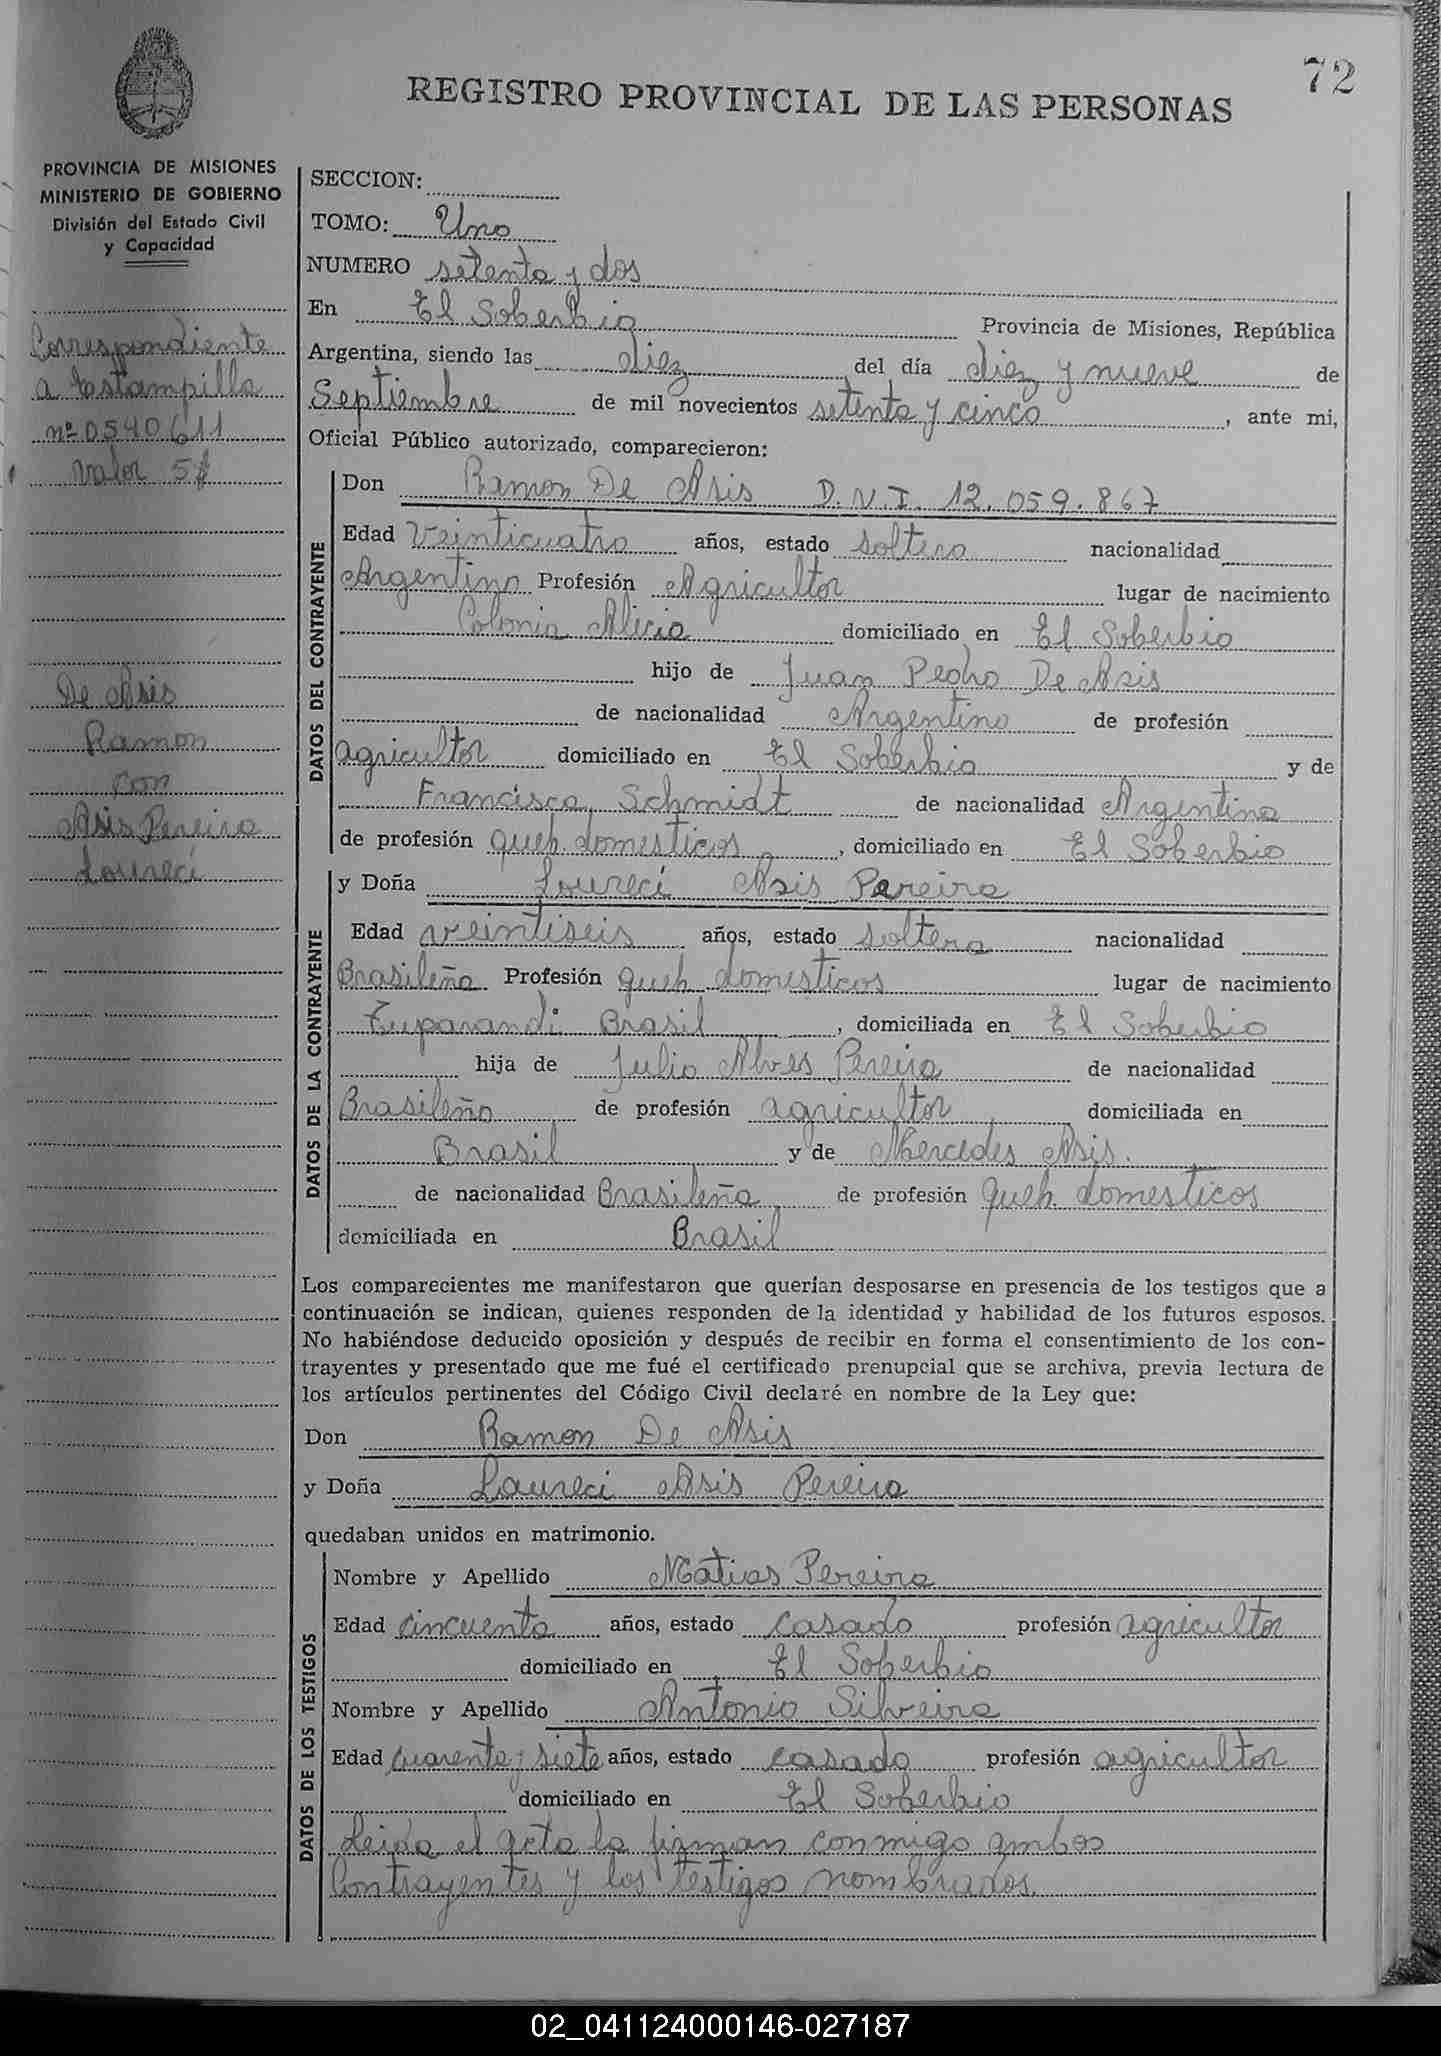 72
REGISTRO PROVINCIAL DE LAS PERSONAS
PROVINCIA DE MISIONES
MINISTERIO DE GOBIERNO
División del Estado Civil
y Capacidad
Correspondiente
a Estampilla
nº 0540611
Valor 5$
De Asis
Ramon
con
Asis Pereira
Loureci
SECCION:
TOMO: Uno
NUMERO setenta y dos
En El Soberbio Provincia de Misiones, República
Argentina, siendo las diez del día diez y nueve de
Septiembre de mil novecientos setenta y cinco, ante mi,
Oficial Público autorizado, comparecieron:
DATOS DEL CONTRAYENTE
Don Ramon De Asis D.N.I. 12.059.867
Edad Veinticuatro años, estado soltero nacionalidad
Argentino Profesión Agricultor lugar de nacimiento
Colonia Alicia domiciliado en El Soberbio
hijo de Juan Pedro De Asis
de nacionalidad Argentino de profesión
agricultor domiciliado en El Soberbio y de
Francisca Schmidt de nacionalidad Argentina
de profesión queh. domesticos, domiciliado en El Soberbio
DATOS DE LA CONTRAYENTE
y Doña Loureci Asis Pereira
Edad veintiseis años, estado soltera nacionalidad
Brasileña Profesión queh. domesticos lugar de nacimiento
Tuparandi Brasil, domiciliada en El Soberbio
hija de Julio Alves Pereira de nacionalidad
Brasileño de profesión agricultor domiciliada en
Brasil y de Mercedes Asis.
de nacionalidad Brasileña de profesión queh. domesticos
domiciliada en Brasil
Los comparecientes me manifestaron que querían desposarse en presencia de los testigos que a
continuación se indican, quienes responden de la identidad y habilidad de los futuros esposos.
No habiéndose deducido oposición y después de recibir en forma el consentimiento de los con-
trayentes y presentado que me fué el certificado prenupcial que se archiva, previa lectura de
los artículos pertinentes del Código Civil declaré en nombre de la Ley que:
Don Ramon De Asis
y Doña Laureci Asis Pereira
quedaban unidos en matrimonio.
DATOS DE LOS TESTIGOS
Nombre y Apellido Matias Pereira
Edad cincuenta años, estado casado profesión agricultor
domiciliado en El Soberbio
Nombre y Apellido Antonio Silveira
Edad cuarenta y siete años, estado casado profesión agricultor
domiciliado en El Soberbio
Leida el acta la firman conmigo ambos
Contrayentes y los testigos nombrados.
02_041124000146-027187